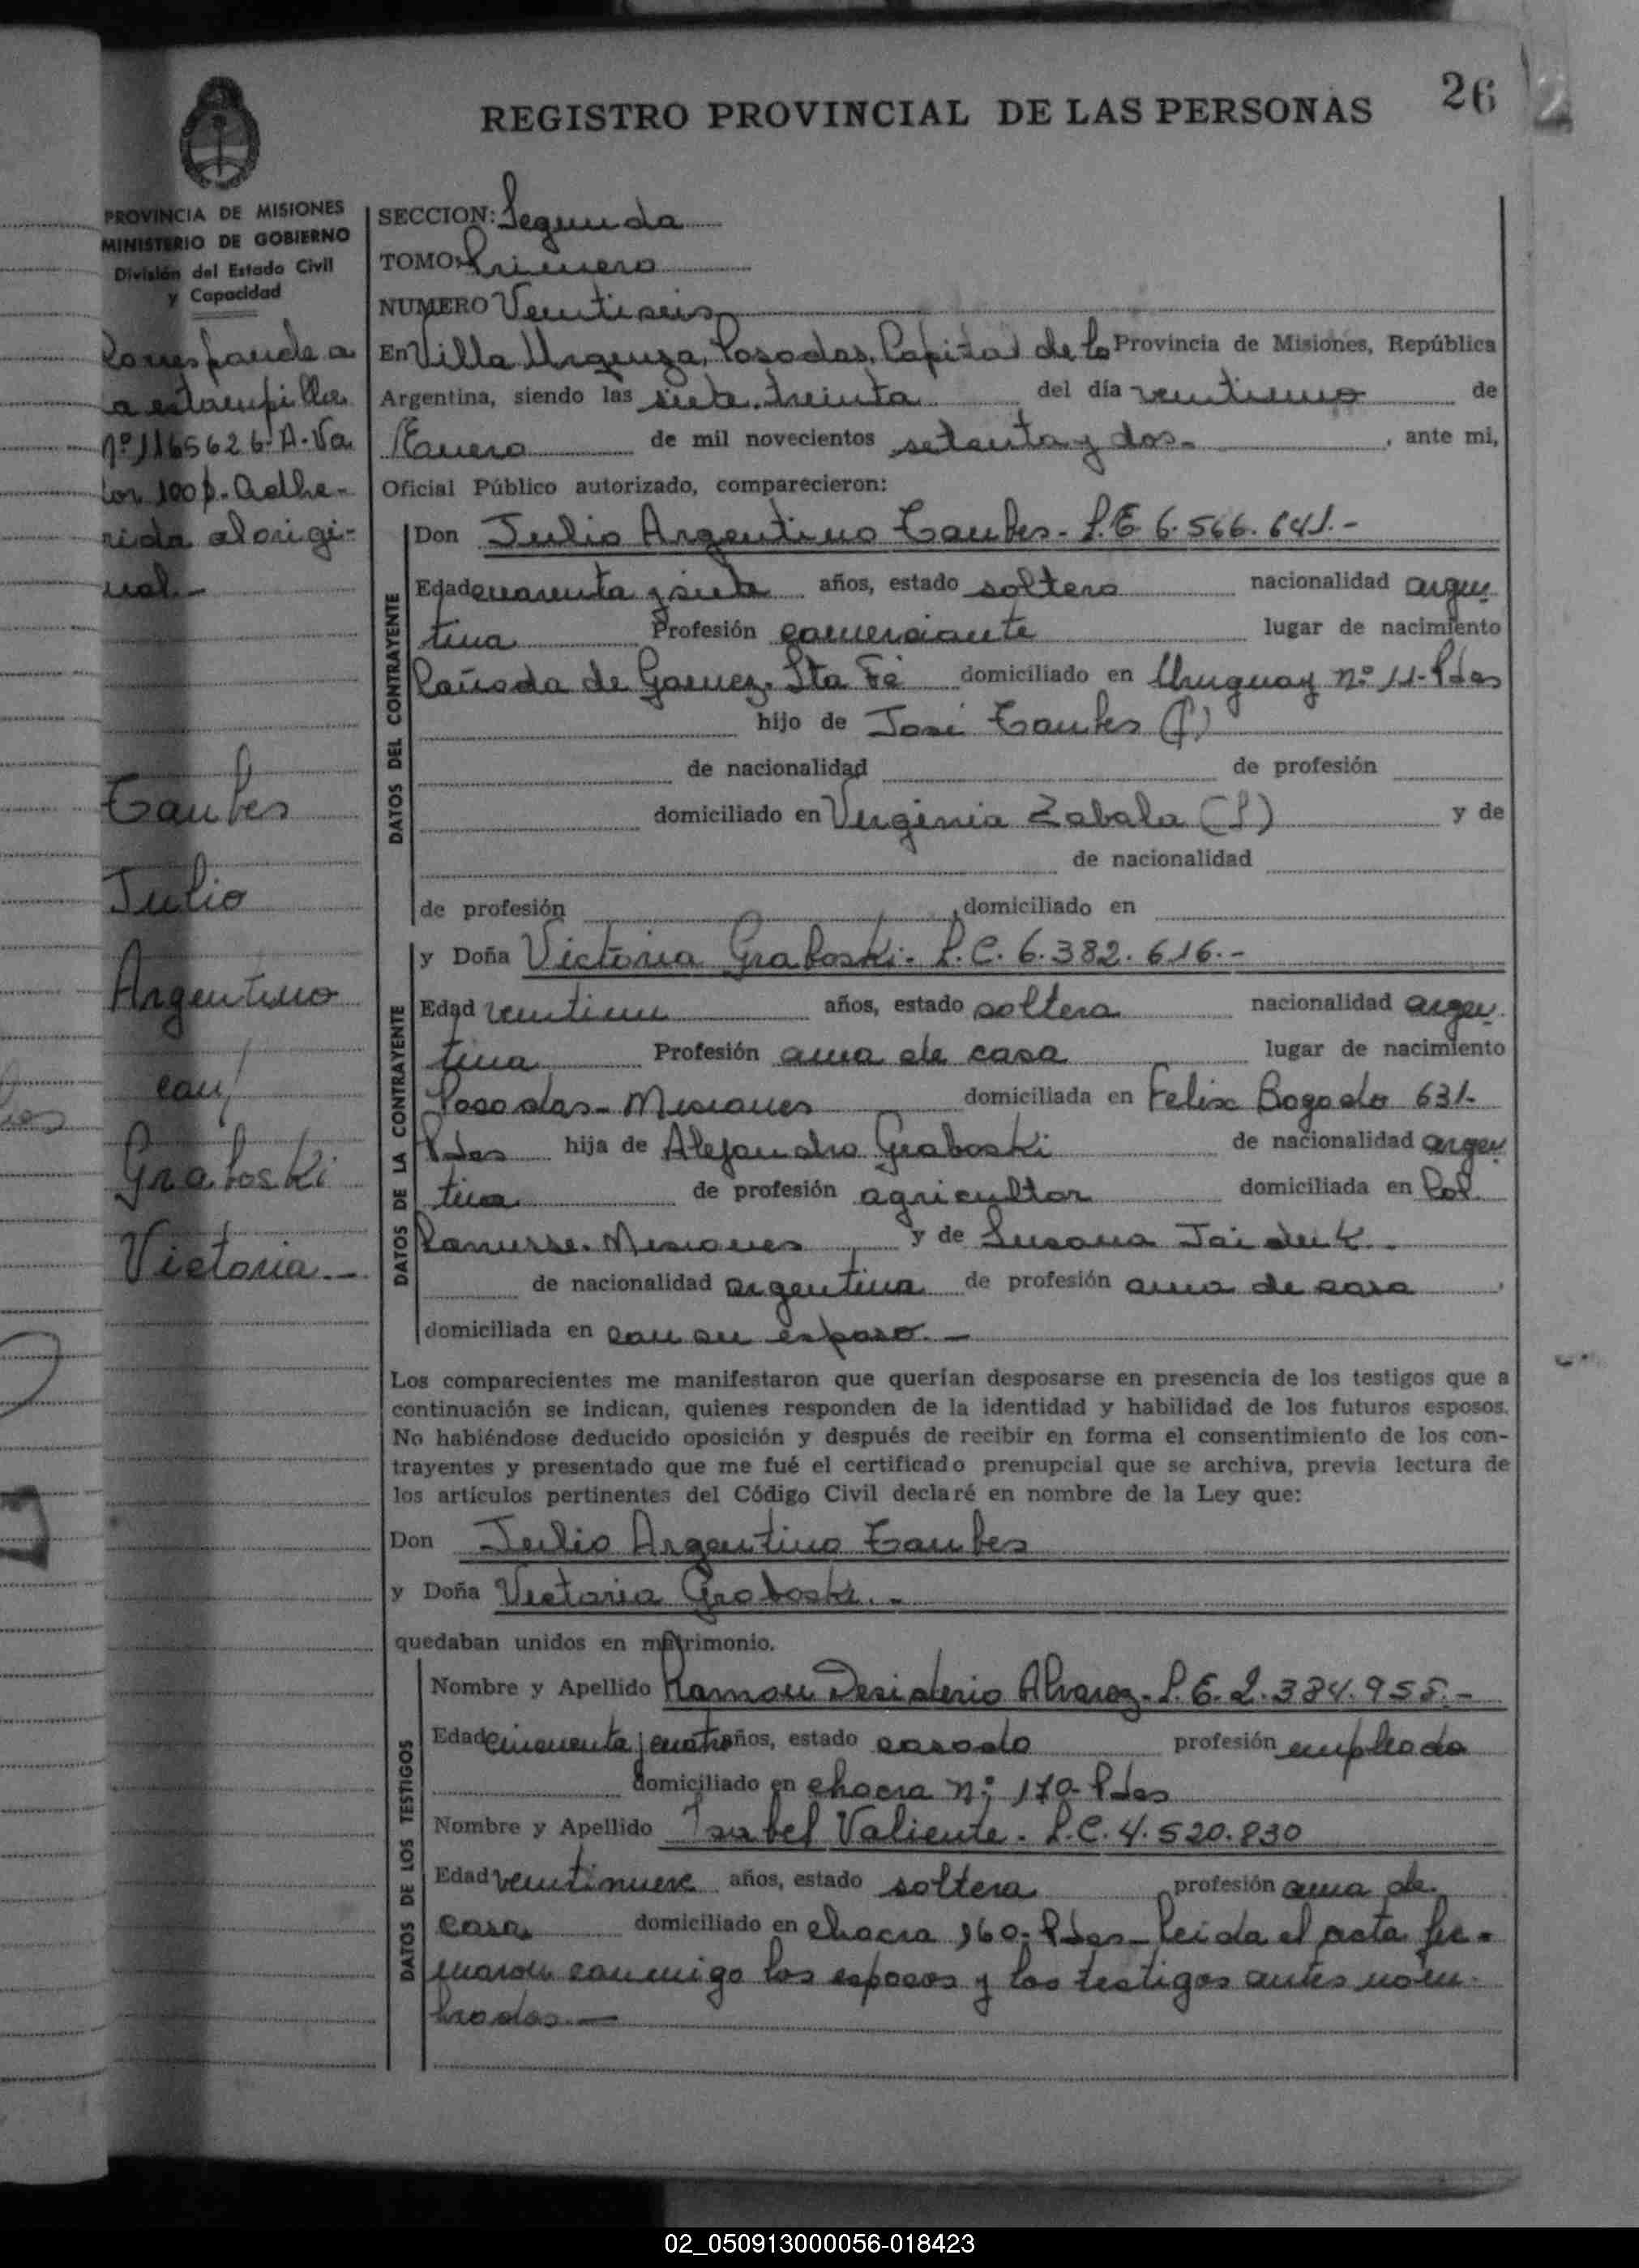 26
REGISTRO PROVINCIAL DE LAS PERSONAS
PROVINCIA DE MISIONES
MINISTERIO DE GOBIERNO
División del Estado Civil
y Capacidad
Corresponde a
a estampilla
nº 1165626-A-Va
lor 100 $. adhe-
rida al origi-
nal.-
Taubes
Julio
Argentino
con/
Graboski
Victoria.-
SECCION: Segunda
TOMO: Primero
NUMERO Veintiseis
En Villa Urquiza, Posadas, Capital de la Provincia de Misiones, República
Argentina, siendo las siete. treinta del día veintiuno de
Enero de mil novecientos setenta y dos.- , ante mi,
Oficial Público autorizado, comparecieron:
DATOS DEL CONTRAYENTE
Don Julio Argentino Taubes. L.E 6.566.641.-
Edad cuarenta y siete años, estado soltero nacionalidad argen
tina Profesión comerciante lugar de nacimiento
Cañada de Gomez. Sta Fé domiciliado en Uruguay nº 11-Pdas
hijo de José Taubes (f)
de nacionalidad de profesión
domiciliado en Virginia Zabala (f) y de
de nacionalidad
de profesión , domiciliado en
DATOS DE LA CONTRAYENTE
y Doña Victoria Graboski. L.C. 6.382.616.-
Edad veintiun años, estado soltera nacionalidad argen
tina Profesión ama de casa lugar de nacimiento
Posadas-Misiones domiciliada en Felix Bogado 631-
Pdas hija de Alejandro Graboski de nacionalidad argen
tina de profesión agricultor domiciliada en Col.
Lanusse. Misiones y de Susana Jaiduk.
de nacionalidad argentina de profesión ama de casa ,
domiciliada en con su esposo.-
Los comparecientes me manifestaron que querían desposarse en presencia de los testigos que a
continuación se indican, quienes responden de la identidad y habilidad de los futuros esposos.
No habiéndose deducido oposición y después de recibir en forma el consentimiento de los con-
trayentes y presentado que me fué el certificado prenupcial que se archiva, previa lectura de
los artículos pertinentes del Código Civil declaré en nombre de la Ley que:
Don Julio Argentino Taubes
y Doña Victoria Graboski.-
quedaban unidos en matrimonio.
DATOS DE LOS TESTIGOS
Nombre y Apellido Ramon Desiderio Alvarez. L.E. 2.384.958.-
Edad cincuenta y cuatro años, estado casado profesión empleado
domiciliado en chacra nº 170-Pdas
Nombre y Apellido Isabel Valiente. L.C. 4.520.830
Edad veintinueve años, estado soltera profesión ama de
casa domiciliado en chacra 160-Pdas- Leida el acta fir-
maron conmigo los esposos y los testigos antes nom-
brados.-
02_050913000056-018423